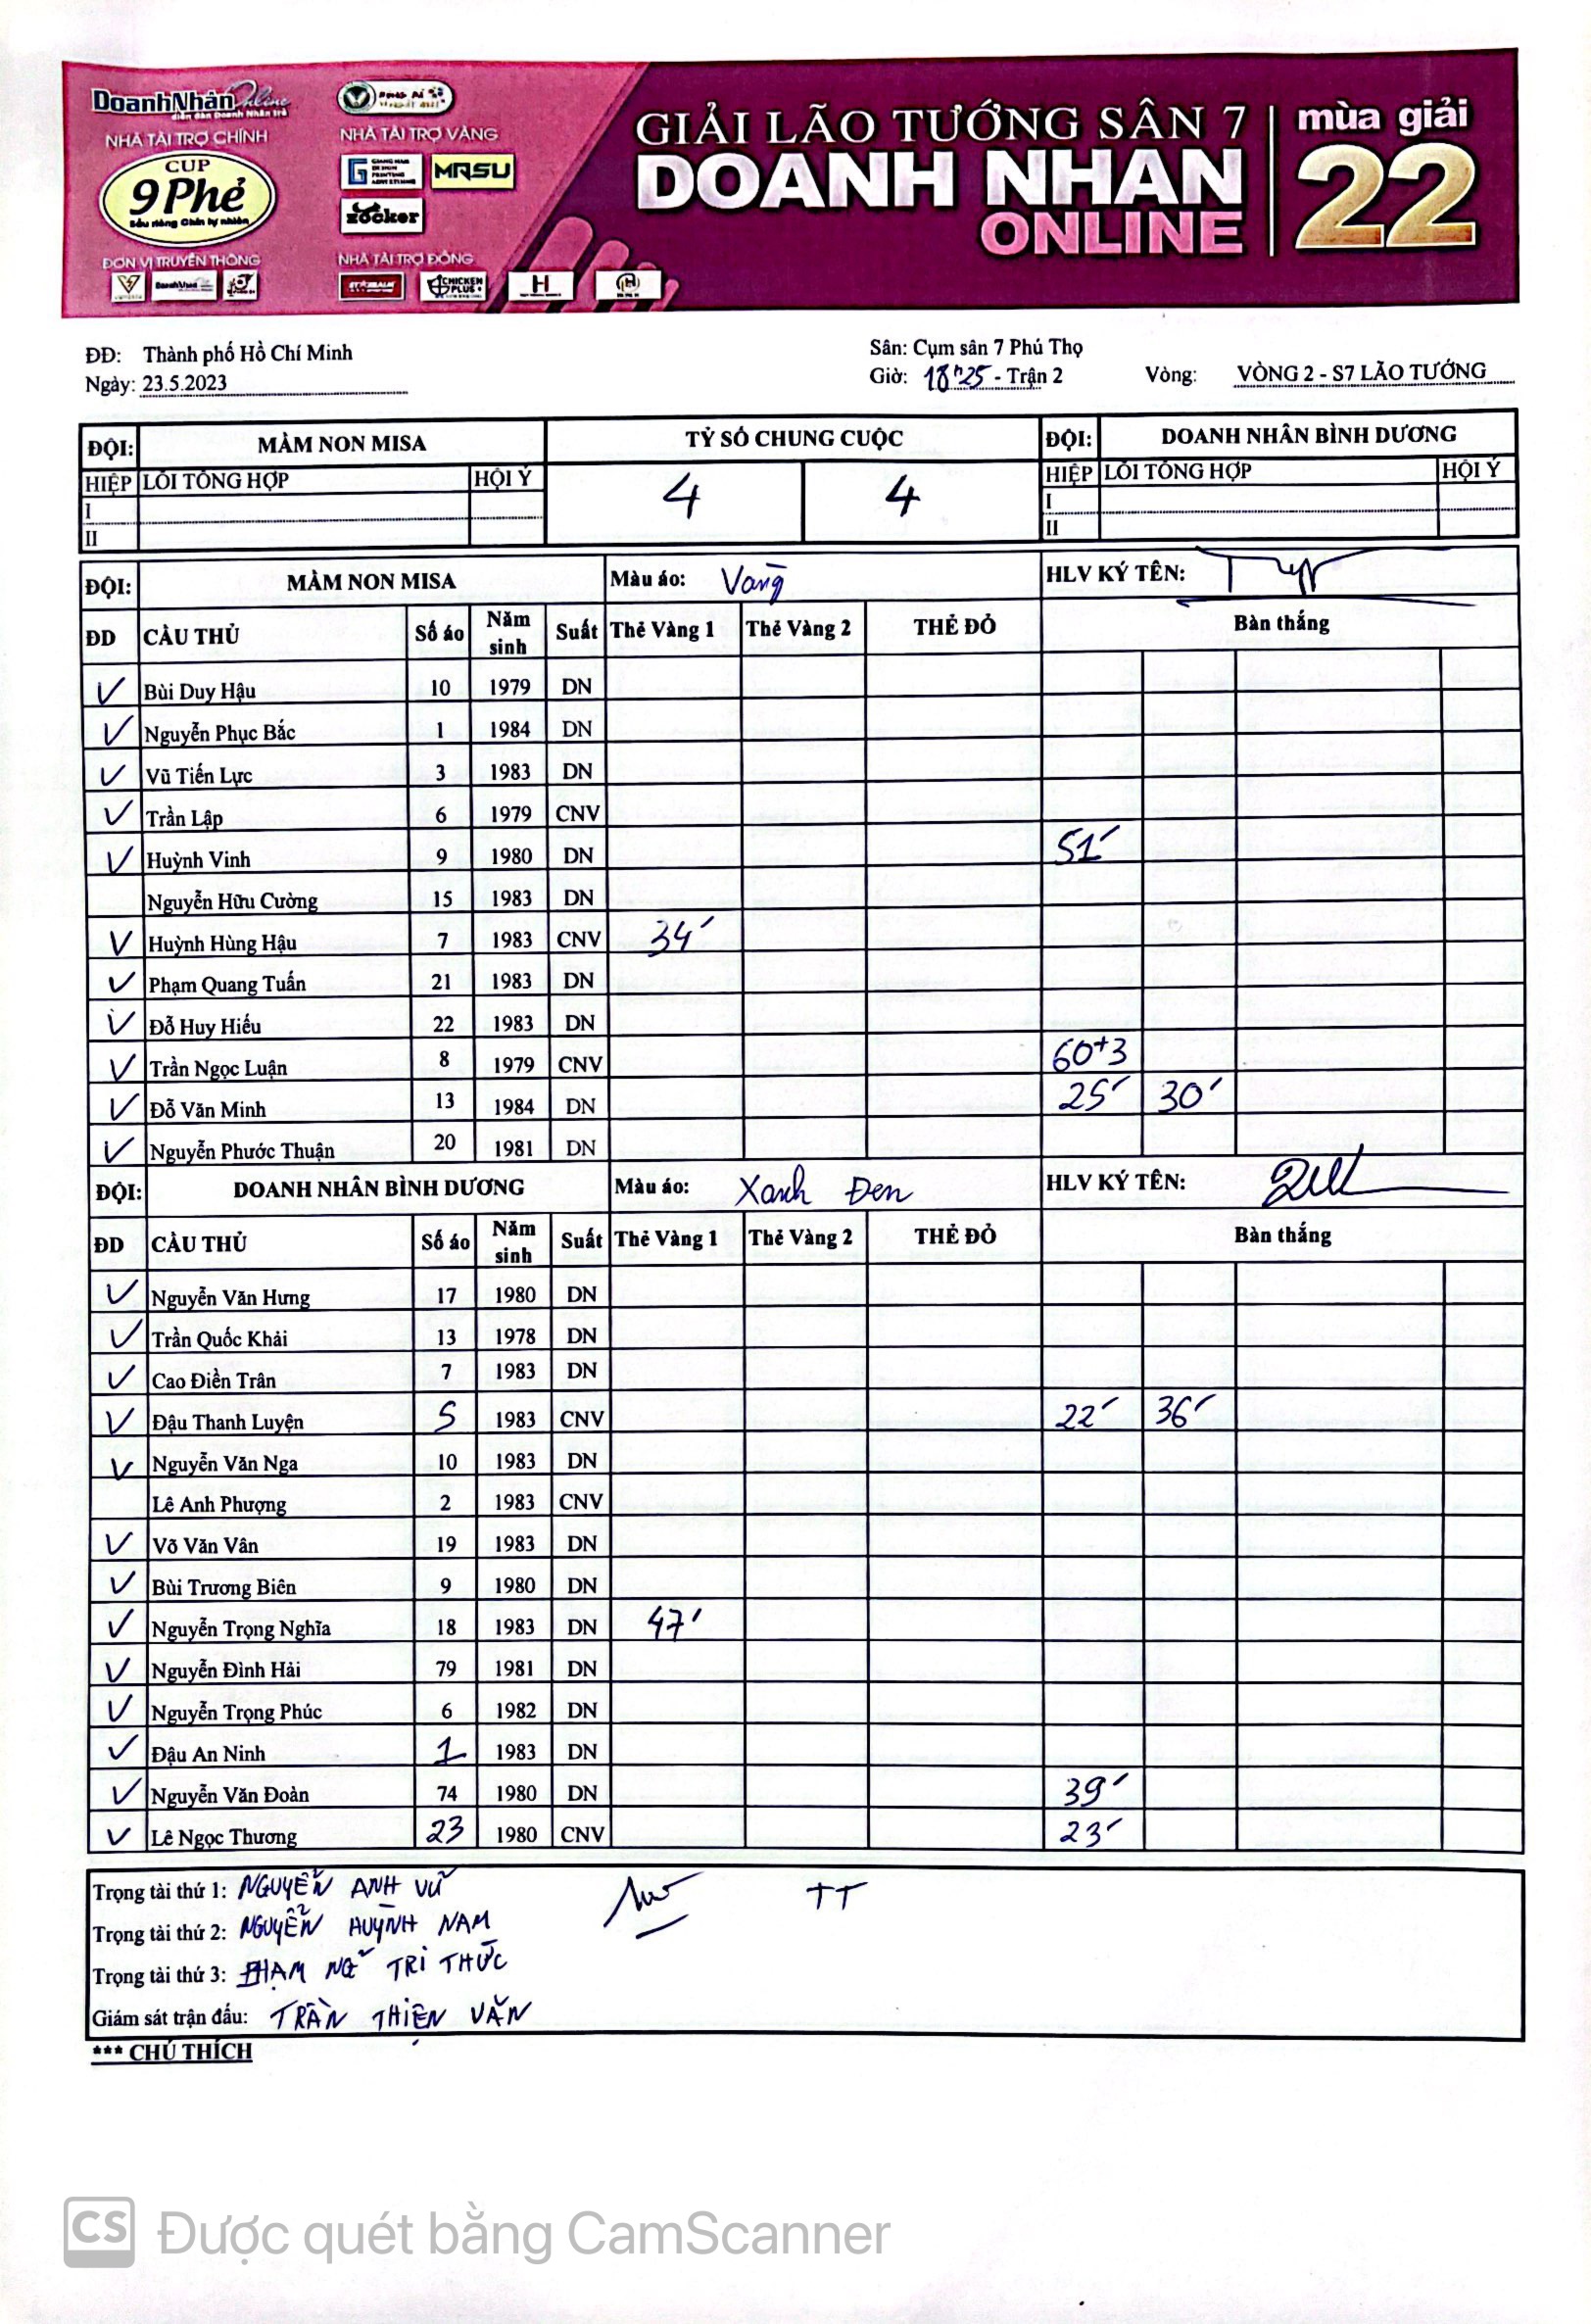 DoanhNhân Online
diễn đàn Doanh Nhân trẻ
NHÀ TÀI TRỢ CHÍNH
CUP
9 Phẻ
Sầu riêng Chín tự nhiên
ĐƠN VỊ TRUYỀN THÔNG
NHÀ TÀI TRỢ VÀNG
MRSU
zocker
NHÀ TÀI TRỢ ĐỒNG
CHICKEN PLUS
H
GIẢI LÃO TƯỚNG SÂN 7
DOANH NHAN
ONLINE
mùa giải
22
ĐĐ: Thành phố Hồ Chí Minh
Ngày: 23.5.2023
Sân: Cụm sân 7 Phú Thọ
Giờ: 18h25 - Trận 2
Vòng: VÒNG 2 - S7 LÃO TƯỚNG
ĐỘI: MẦM NON MISA TỶ SỐ CHUNG CUỘC ĐỘI: DOANH NHÂN BÌNH DƯƠNG
HIỆP LỖI TỔNG HỢP HỘI Ý 4 4 HIỆP LỖI TỔNG HỢP HỘI Ý
I I
II II
ĐỘI: MẦM NON MISA Màu áo: Vàng HLV KÝ TÊN:
ĐD CẦU THỦ Số áo Năm sinh Suất Thẻ Vàng 1 Thẻ Vàng 2 THẺ ĐỎ Bàn thắng
✓ Bùi Duy Hậu 10 1979 DN
✓ Nguyễn Phục Bắc 1 1984 DN
✓ Vũ Tiến Lực 3 1983 DN
✓ Trần Lập 6 1979 CNV
✓ Huỳnh Vinh 9 1980 DN 51'
Nguyễn Hữu Cường 15 1983 DN
✓ Huỳnh Hùng Hậu 7 1983 CNV 34'
✓ Phạm Quang Tuấn 21 1983 DN
✓ Đỗ Huy Hiếu 22 1983 DN
✓ Trần Ngọc Luận 8 1979 CNV 60+3
✓ Đỗ Văn Minh 13 1984 DN 25' 30'
✓ Nguyễn Phước Thuận 20 1981 DN
ĐỘI: DOANH NHÂN BÌNH DƯƠNG Màu áo: Xanh Đen HLV KÝ TÊN:
ĐD CẦU THỦ Số áo Năm sinh Suất Thẻ Vàng 1 Thẻ Vàng 2 THẺ ĐỎ Bàn thắng
✓ Nguyễn Văn Hưng 17 1980 DN
✓ Trần Quốc Khải 13 1978 DN
✓ Cao Điền Trân 7 1983 DN
✓ Đậu Thanh Luyện 5 1983 CNV 22' 36'
✓ Nguyễn Văn Nga 10 1983 DN
Lê Anh Phượng 2 1983 CNV
✓ Võ Văn Vân 19 1983 DN
✓ Bùi Trương Biên 9 1980 DN
✓ Nguyễn Trọng Nghĩa 18 1983 DN 47'
✓ Nguyễn Đình Hải 79 1981 DN
✓ Nguyễn Trọng Phúc 6 1982 DN
✓ Đậu An Ninh 1 1983 DN
✓ Nguyễn Văn Đoàn 74 1980 DN 39'
✓ Lê Ngọc Thương 23 1980 CNV 23'
Trọng tài thứ 1: NGUYỄN ANH VŨ TT
Trọng tài thứ 2: NGUYỄN HUỲNH NAM
Trọng tài thứ 3: PHẠM TRÍ THỨC
Giám sát trận đấu: TRẦN THIỆN VĂN
*** CHÚ THÍCH
CS Được quét bằng CamScanner